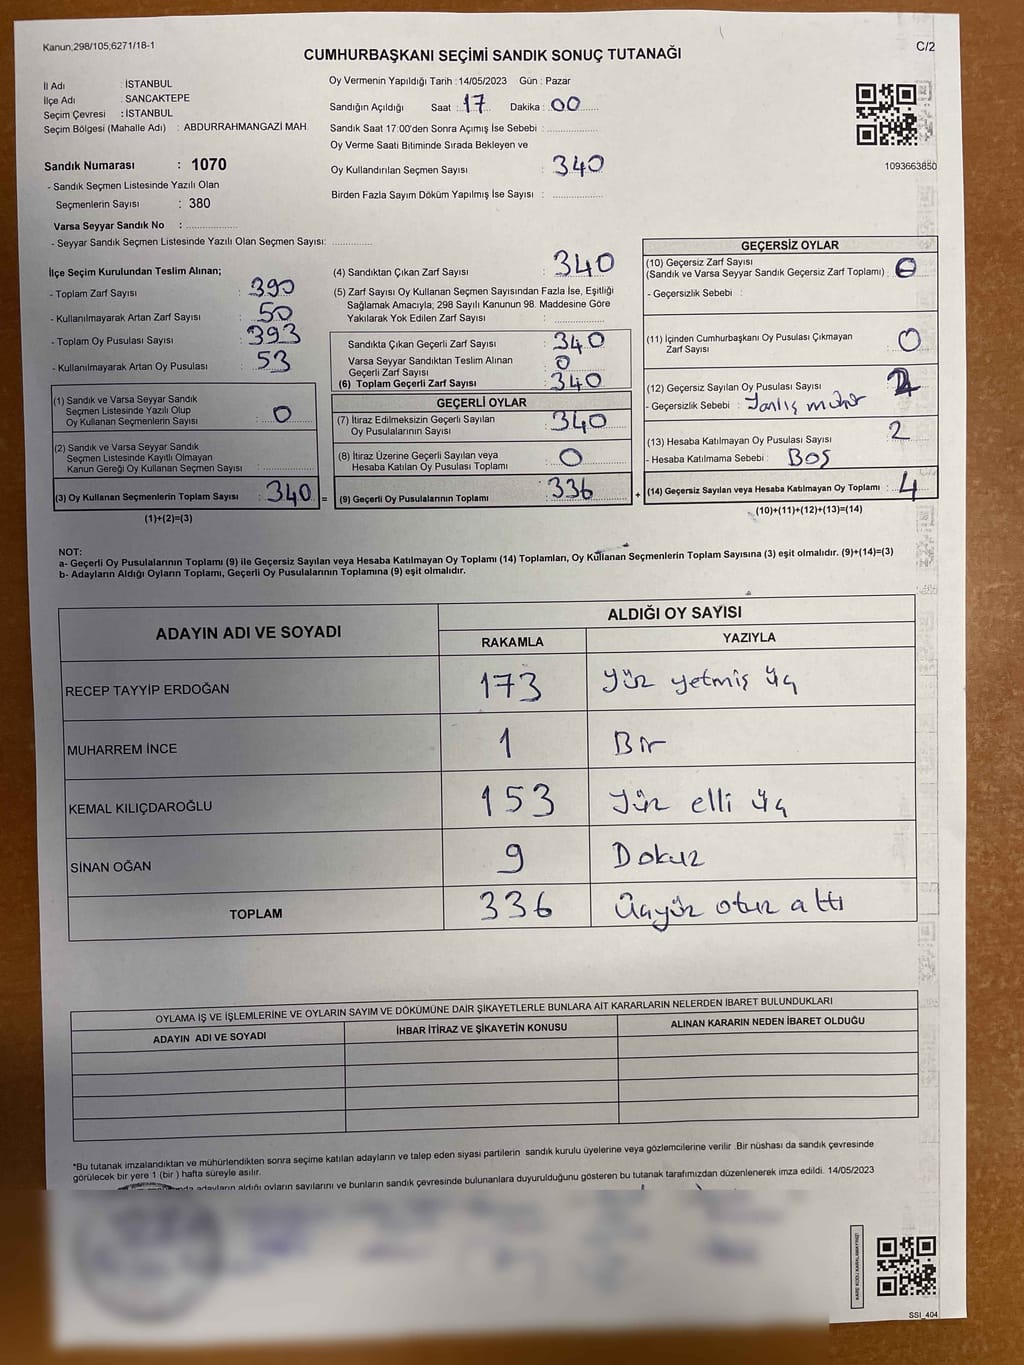 Kanun;298/105;6271/18-1
C/2
CUMHURBAŞKANI SEÇİMİ SANDIK SONUÇ TUTANAĞI
İl Adı : İSTANBUL
İlçe Adı : SANCAKTEPE
Seçim Çevresi : İSTANBUL
Seçim Bölgesi (Mahalle Adı) : ABDURRAHMANGAZİ MAH.
Sandık Numarası : 1070
- Sandık Seçmen Listesinde Yazılı Olan
Seçmenlerin Sayısı : 380
Varsa Seyyar Sandık No :
- Seyyar Sandık Seçmen Listesinde Yazılı Olan Seçmen Sayısı:
Oy Vermenin Yapıldığı Tarih : 14/05/2023 Gün : Pazar
Sandığın Açıldığı Saat : 17 Dakika : 00
Sandık Saat 17:00'den Sonra Açımış İse Sebebi :
Oy Verme Saati Bitiminde Sırada Bekleyen ve
Oy Kullandırılan Seçmen Sayısı : 340
Birden Fazla Sayım Döküm Yapılmış İse Sayısı :
1093663850
İlçe Seçim Kurulundan Teslim Alınan;
- Toplam Zarf Sayısı : 390
- Kullanılmayarak Artan Zarf Sayısı : 50
- Toplam Oy Pusulası Sayısı : 393
- Kullanılmayarak Artan Oy Pusulası : 53
(1) Sandık ve Varsa Seyyar Sandık
Seçmen Listesinde Yazılı Olup
Oy Kullanan Seçmenlerin Sayısı : 0
(2) Sandık ve Varsa Seyyar Sandık
Seçmen Listesinde Kayıtlı Olmayan
Kanun Gereği Oy Kullanan Seçmen Sayısı :
(3) Oy Kullanan Seçmenlerin Toplam Sayısı : 340 =
(1)+(2)=(3)
(4) Sandıktan Çıkan Zarf Sayısı : 340
(5) Zarf Sayısı Oy Kullanan Seçmen Sayısından Fazla İse, Eşitliği
Sağlamak Amacıyla; 298 Sayılı Kanunun 98. Maddesine Göre
Yakılarak Yok Edilen Zarf Sayısı :
Sandıkta Çıkan Geçerli Zarf Sayısı : 340
Varsa Seyyar Sandıktan Teslim Alınan
Geçerli Zarf Sayısı : 0
(6) Toplam Geçerli Zarf Sayısı : 340
GEÇERLİ OYLAR
(7) İtiraz Edilmeksizin Geçerli Sayılan
Oy Pusulalarının Sayısı : 340
(8) İtiraz Üzerine Geçerli Sayılan veya
Hesaba Katılan Oy Pusulası Toplamı : 0
(9) Geçerli Oy Pusulalarının Toplamı : 336 +
GEÇERSİZ OYLAR
(10) Geçersiz Zarf Sayısı
(Sandık ve Varsa Seyyar Sandık Geçersiz Zarf Toplamı) : 0
- Geçersizlik Sebebi :
(11) İçinden Cumhurbaşkanı Oy Pusulası Çıkmayan
Zarf Sayısı : 0
(12) Geçersiz Sayılan Oy Pusulası Sayısı :
- Geçersizlik Sebebi : Yanlış mühür
(13) Hesaba Katılmayan Oy Pusulası Sayısı : 2
- Hesaba Katılmama Sebebi : Boş
(14) Geçersiz Sayılan veya Hesaba Katılmayan Oy Toplamı : 4
(10)+(11)+(12)+(13)=(14)
NOT:
a- Geçerli Oy Pusulalarının Toplamı (9) ile Geçersiz Sayılan veya Hesaba Katılmayan Oy Toplamı (14) Toplamları, Oy Kullanan Seçmenlerin Toplam Sayısına (3) eşit olmalıdır. (9)+(14)=(3)
b- Adayların Aldığı Oyların Toplamı, Geçerli Oy Pusulalarının Toplamına (9) eşit olmalıdır.
ADAYIN ADI VE SOYADI
ALDIĞI OY SAYISI
RAKAMLA YAZIYLA
RECEP TAYYİP ERDOĞAN 173 Yüz yetmiş üç
MUHARREM İNCE 1 Bir
KEMAL KILIÇDAROĞLU 153 Yüz elli üç
SİNAN OĞAN 9 Dokuz
TOPLAM 336 Üçyüz otuz altı
OYLAMA İŞ VE İŞLEMLERİNE VE OYLARIN SAYIM VE DÖKÜMÜNE DAİR ŞİKAYETLERLE BUNLARA AİT KARARLARIN NELERDEN İBARET BULUNDUKLARI
ADAYIN ADI VE SOYADI İHBAR İTİRAZ VE ŞİKAYETİN KONUSU ALINAN KARARIN NEDEN İBARET OLDUĞU
*Bu tutanak imzalandıktan ve mühürlendikten sonra seçime katılan adayların ve talep eden siyasi partilerin sandık kurulu üyelerine veya gözlemcilerine verilir .Bir nüshası da sandık çevresinde
görülecek bir yere 1 (bir ) hafta süreyle asılır.
adayların aldığı oyların sayılarını ve bunların sandık çevresinde bulunanlara duyurulduğunu gösteren bu tutanak tarafımızdan düzenlenerek imza edildi. 14/05/2023
SSI_404